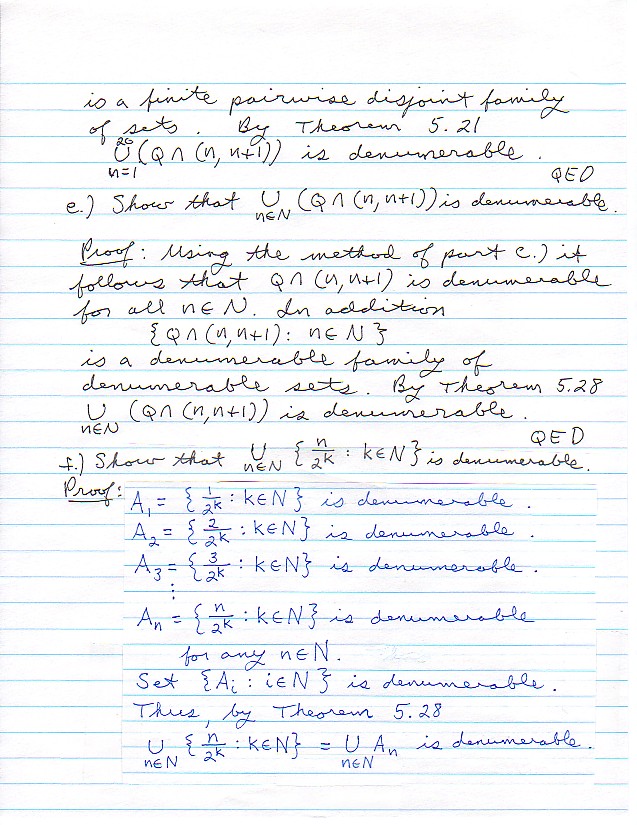 is a finite pairwise disjoint family
of sets. By Theorem 5.21
20
∪ (Q ∩ (n, n+1)) is denumerable.
n=1
QED
e.) Show that ∪ (Q ∩ (n, n+1)) is denumerable.
n∈N
Proof: Using the method of part c.) it
follows that Q ∩ (n, n+1) is denumerable
for all n ∈ N. In addition
{Q ∩ (n, n+1) : n ∈ N}
is a denumerable family of
denumerable sets. By Theorem 5.28
∪ (Q ∩ (n, n+1)) is denumerable.
n∈N
QED
f.) Show that ∪ {n/2^k : k∈N} is denumerable.
n∈N
Proof:
A₁ = {1/2^k : k∈N} is denumerable.
A₂ = {2/2^k : k∈N} is denumerable.
A₃ = {3/2^k : k∈N} is denumerable.
⋮
Aₙ = {n/2^k : k∈N} is denumerable
for any n∈N.
Set {Aᵢ : i∈N} is denumerable.
Thus, by Theorem 5.28
∪ {n/2^k : k∈N} = ∪ Aₙ is denumerable.
n∈N n∈N